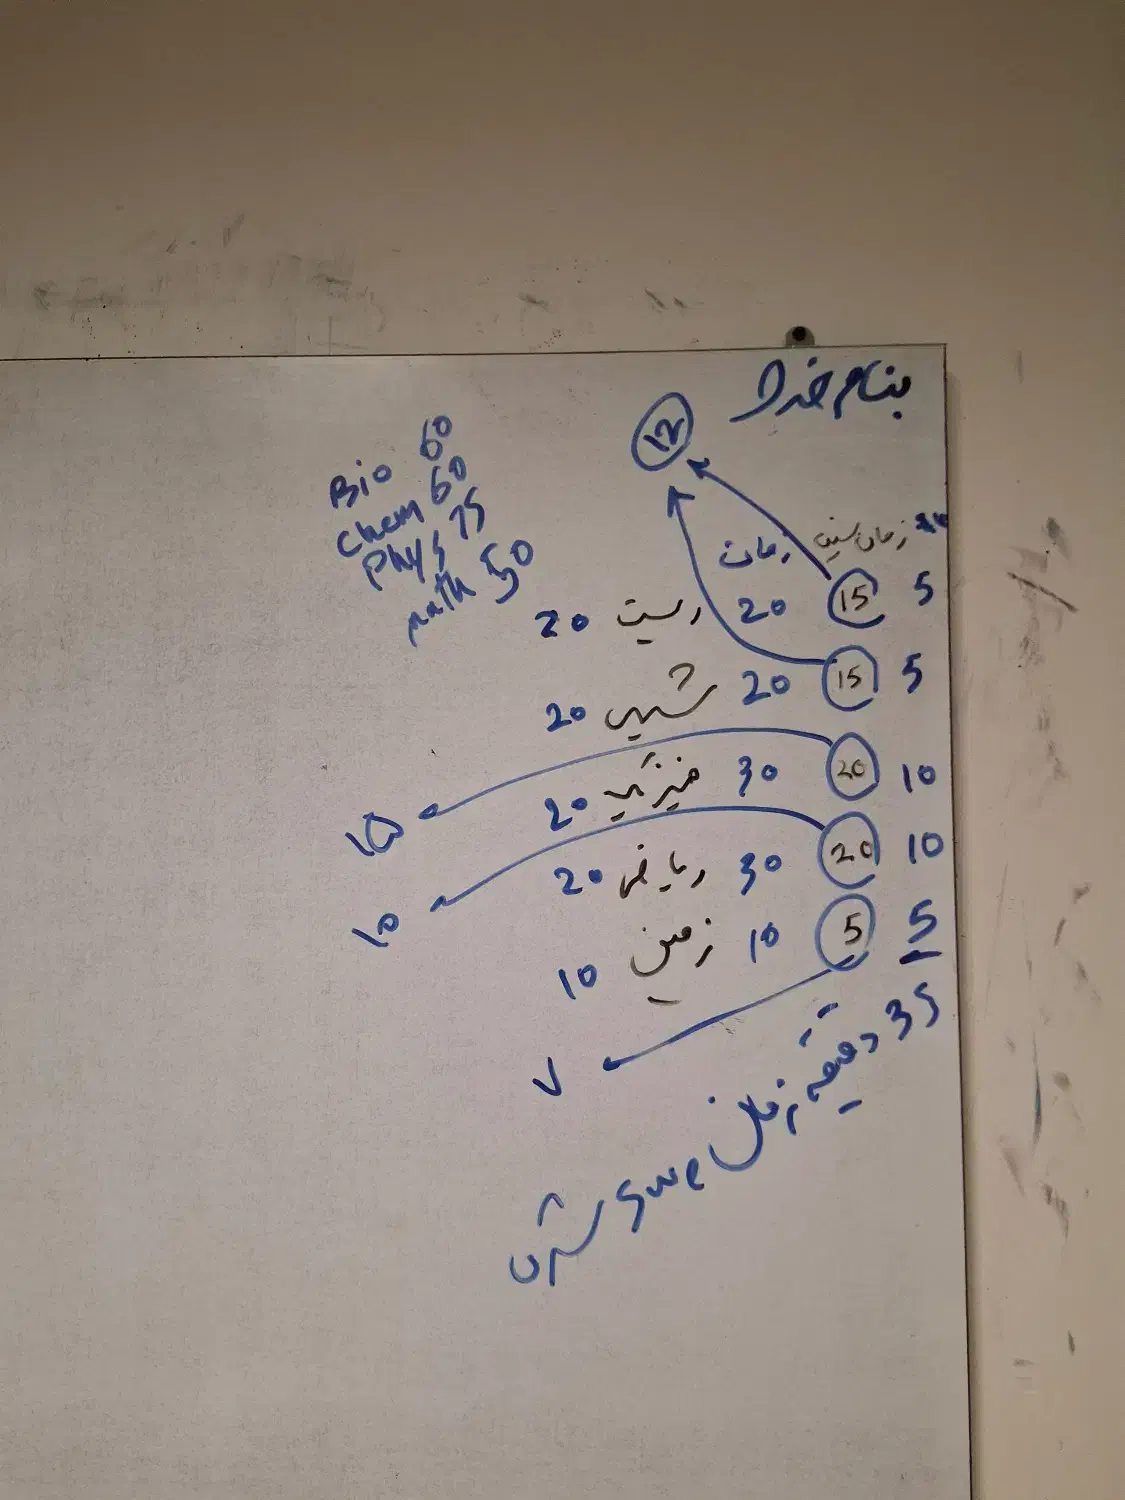 بنام خدا
۱۲
Bio 60
Chem 60
Phys 75
math 50
زمان زمان
5 15 20 زیست 20
5 15 20 شیمی 20
10 20 30 فیزیک 20
۱۵
10 20 30 ریاضی 20
۱۰
5 5 10 زمین 10
۷
35 دقیقه زمان